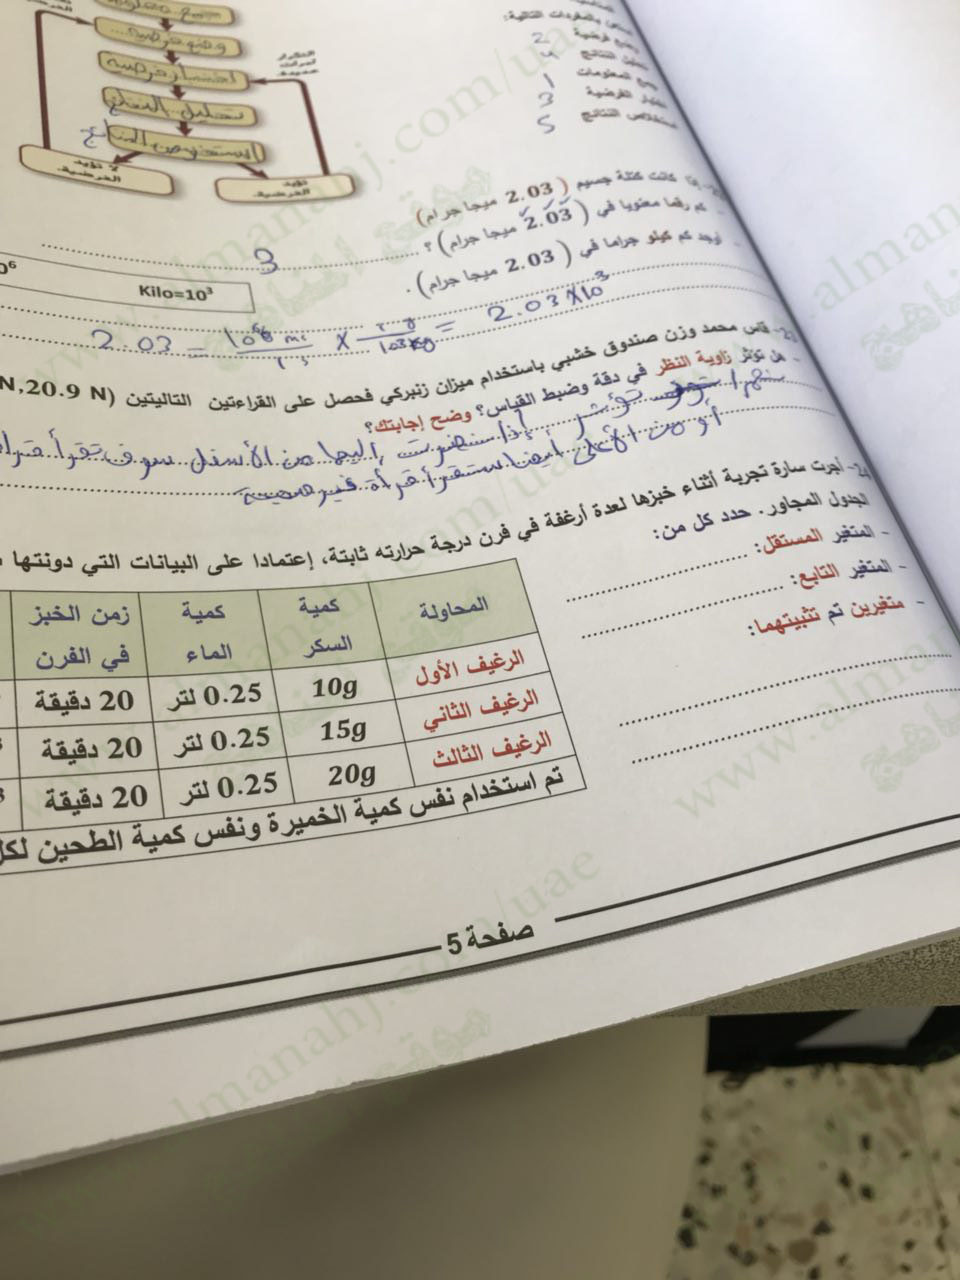 وضع فرضية 2
تحليل النتائج 4
جمع المعلومات 1
اختبار الفرضية 3
استخلاص النتائج 5
اختبار فرضية
تحليل النتائج
التكرار
لمرات
عديدة
لا تؤيد
الفرضية
تؤيد
الفرضية
كانت كتلة جسيم (2.03 ميجا جرام)
- كم رقما معنويا في (2.03 ميجا جرام) ؟ 3
- أوجد كم كيلو جراما في (2.03 ميجا جرام) .
Kilo=10³
2.03 × 10³
- قاس محمد وزن صندوق خشبي باستخدام ميزان زنبركي فحصل على القراءتين التاليتين (N,20.9 N
- هل تؤثر زاوية النظر في دقة وضبط القياس؟ وضح إجابتك؟
نعم تؤثر إذا نظرت إليها من الأسفل سوف تقرأ
أو من الأعلى أيضا ستقرأ قرأة غير صحيحة
24- أجرت سارة تجربة أثناء خبزها لعدة أرغفة في فرن درجة حرارته ثابتة، إعتمادا على البيانات التي دونتها
الجدول المجاور. حدد كل من:
- المتغير المستقل:
- المتغير التابع:
- متغيرين تم تثبيتهما:
المحاولة كمية السكر كمية الماء زمن الخبز في الفرن
الرغيف الأول 10g 0.25 لتر 20 دقيقة
الرغيف الثاني 15g 0.25 لتر 20 دقيقة
الرغيف الثالث 20g 0.25 لتر 20 دقيقة
تم استخدام نفس كمية الخميرة ونفس كمية الطحين لكل
صفحة 5
www.almanahj.com/uae
موقع المناهج